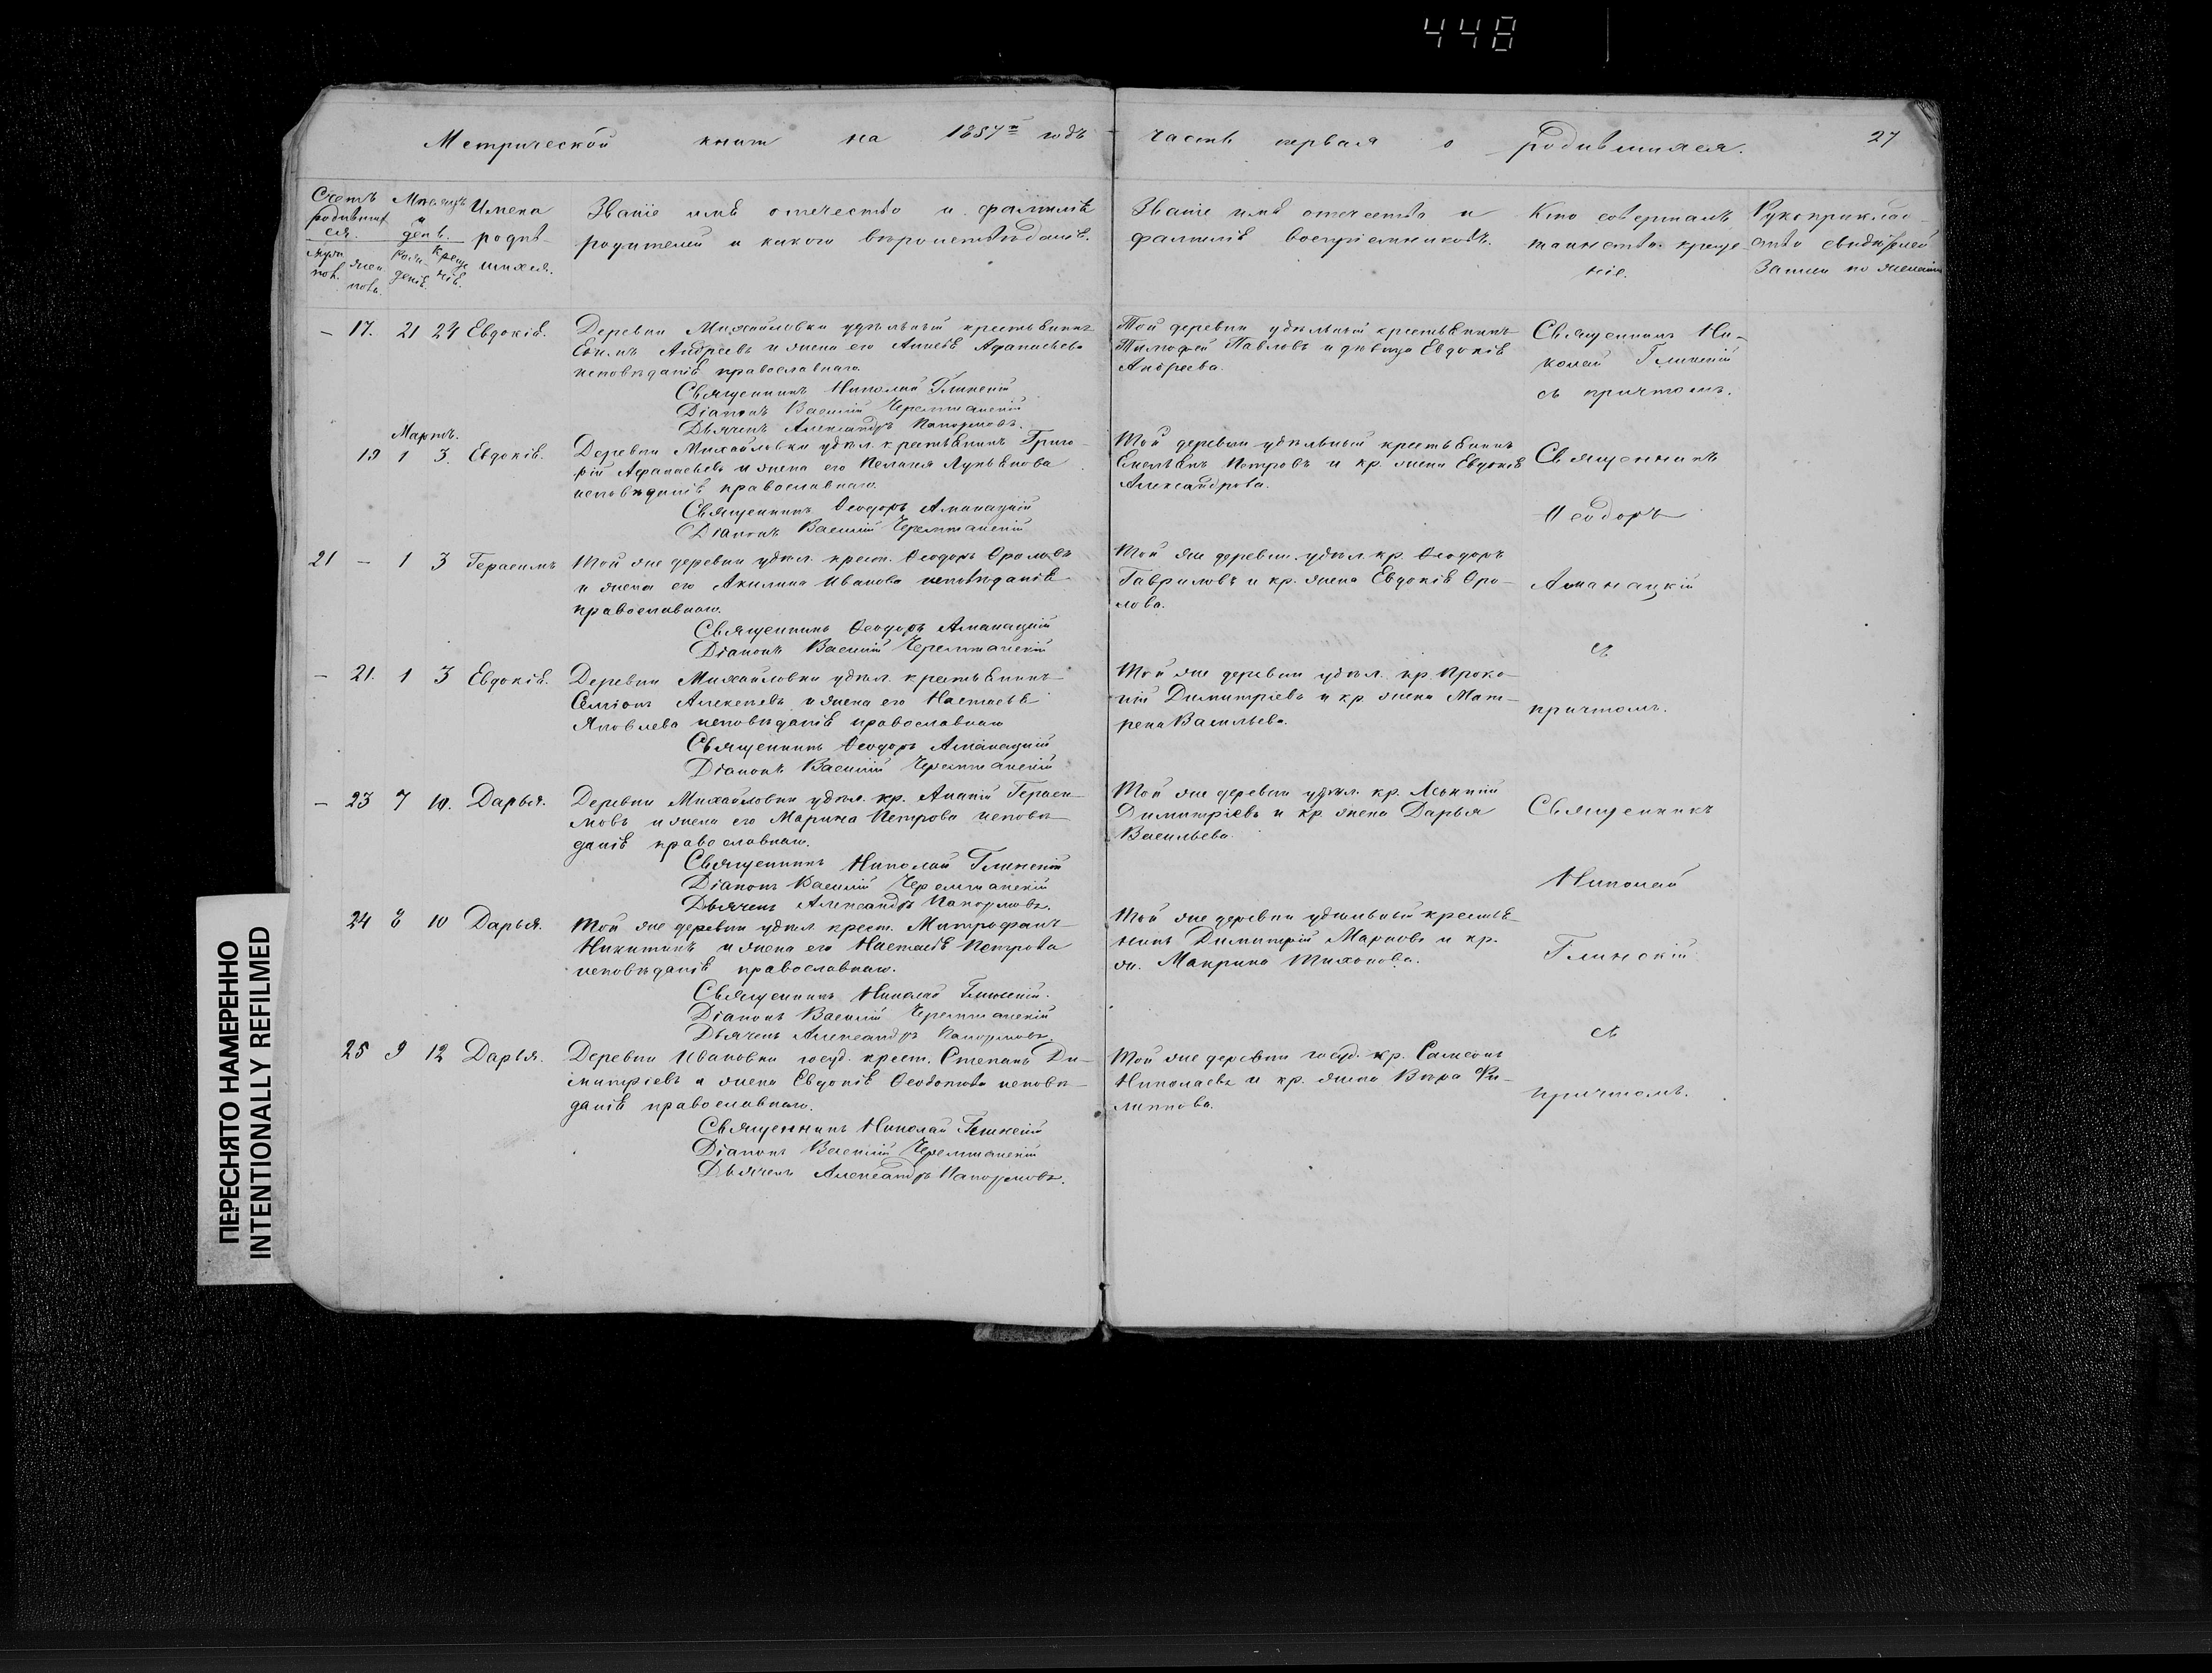 448
Метрической книги на 1857ͫ годъ
часть первая о родившихся.
27
Счетъ родившихся.
Мѣсяцъ и день.
Имена родив-
шихся.
муж. пол.
жен. пола.
рож-
денія.
креще
нія.
Званіе имя отечество и фамилія
родителей и какого вѣроисповѣданія.
Званіе имя отечество и
фамилія воспріемниковъ.
Кто совершалъ
таинство креще
ніе.
Рукоприклад-
ство свидѣтелей
записи по желанію
— 17. 21 24 Евдокія.
Деревни Михайловки удѣльный крестьянинъ
Ефимъ Андреевъ и жена его Анисія Афанасьева
исповѣданія православнаго.
Священникъ Николай Глинскій
Діаконъ Василій Черемшанскій
Дьячекъ Александръ Напормовъ.
Той деревни удѣльный крестьянинъ
Тимофей Павловъ и дѣвица Евдокія
Андреева.
Священникъ Ни-
колай Глинскій
съ причтомъ.
Мартъ.
19 1 3. Евдокія.
Деревни Михайловки удѣл. крестьянинъ Григо-
рій Афанасьевъ и жена его Пелагея Лукьянова
исповѣданія православнаго.
Священникъ Ѳеодоръ Аманацкій
Діаконъ Василій Черемшанскій
Той деревни удѣльный крестьянинъ
Емельянъ Петровъ и кр. жена Евдокія
Александрова.
Священникъ
Ѳеодоръ
Аманацкій
съ
причтомъ.
21 — 1 3 Герасимъ
Той же деревни удѣл. крест. Ѳеодоръ Фроловъ
и жена его Акилина Иванова исповѣданія
православнаго.
Священникъ Ѳеодоръ Аманацкій
Діаконъ Василій Черемшанскій
Той же деревни удѣл. кр. Ѳеодоръ
Гавриловъ и кр. жена Евдокія Фро-
лова.
— 21. 1 3 Евдокія.
Деревни Михайловки удѣл. крестьянинъ
Симіонъ Алексеевъ и жена его Настасья
Яковлева исповѣданія православнаго
Священникъ Ѳеодоръ Аманацкій
Діаконъ Василій Черемшанскій
Той же деревни удѣл. кр. Проко-
пій Димитріевъ и кр. жена Мат-
рена Васильева.
— 23 7 10. Дарья.
Деревни Михайловки удѣл. кр. Ананій Гераси-
мовъ и жена его Марина Петрова исповѣ-
данія православнаго.
Священникъ Николай Глинскій
Діаконъ Василій Черемшанскій
Дьячекъ Александръ Напормовъ.
Той же деревни удѣл. кр.
Димитріевъ и кр. жена Дарья
Васильева.
Священникъ
Николай
Глинскій
съ
причтомъ.
24 8 10 Дарья.
Той же деревни удѣл. крест. Митрофанъ
Никитинъ и жена его Настасія Петрова
исповѣданія православнаго.
Священникъ Николай Глинскій.
Діаконъ Василій Черемшанскій
Дьячекъ Александръ Напормовъ
Той же деревни удѣльный крестья-
нинъ Димитрій Марковъ и кр.
ж. Макрина Тихонова.
25 9 12 Дарья.
Деревни Ивановки госуд. крест. Степанъ Ди-
митріевъ и жена Евдокія Ѳеодотова исповѣ-
данія православнаго.
Священникъ Николай Глинскій
Діаконъ Василій Черемшанскій
Дьячекъ Александръ Напормовъ.
Той же деревни госуд. кр. Самсонъ
Николаевъ и кр. жена Вѣра Фи-
липпова.
ПЕРЕСНЯТО НАМЕРЕННО
INTENTIONALLY REFILMED